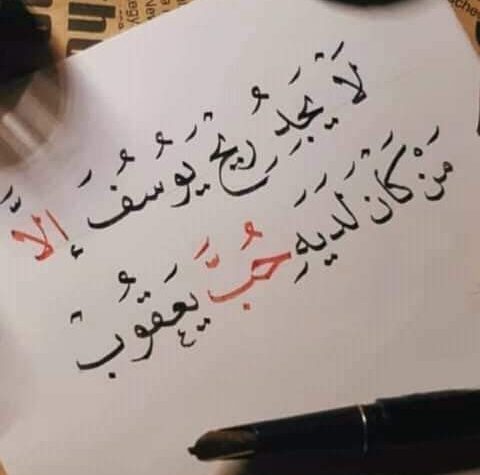 لَا يَجِدُ رِيحَ يُوسُفَ إِلاَّ
مَنْ كَانَ لَدَيهِ حُبَّ يَعقُوبْ